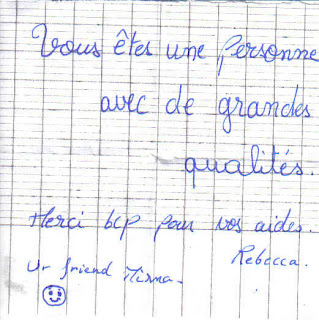 Vous êtes une personne
avec de grandes
qualités.
Merci bcp pour vos aides.
Rebecca.
Ur friend Mirna.